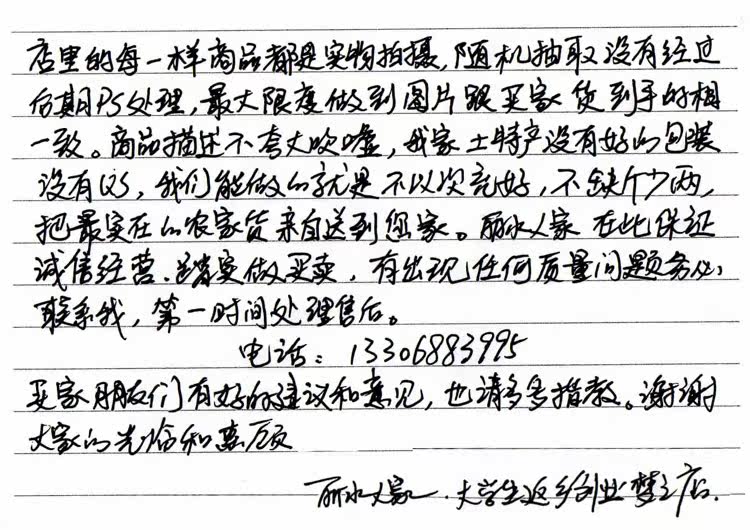 店里的每一样商品都是实物拍摄,随机抽取没有经过
后期PS处理,最大限度做到图片跟买家货到手的相
一致。商品描述不夸大吹嘘,我家土特产没有好的包装
没有QS,我们能做的就是不以次充好,不缺斤少两,
把最实在的农家货亲自送到您家。丽水人家在此保证
诚信经营.踏实做买卖,有出现任何质量问题务必
联系我,第一时间处理售后。
电话:13306883995
买家朋友们有好的建议和意见,也请多多指教。谢谢
大家的光临和惠顾
丽水人家.大学生返乡创业梦之店.